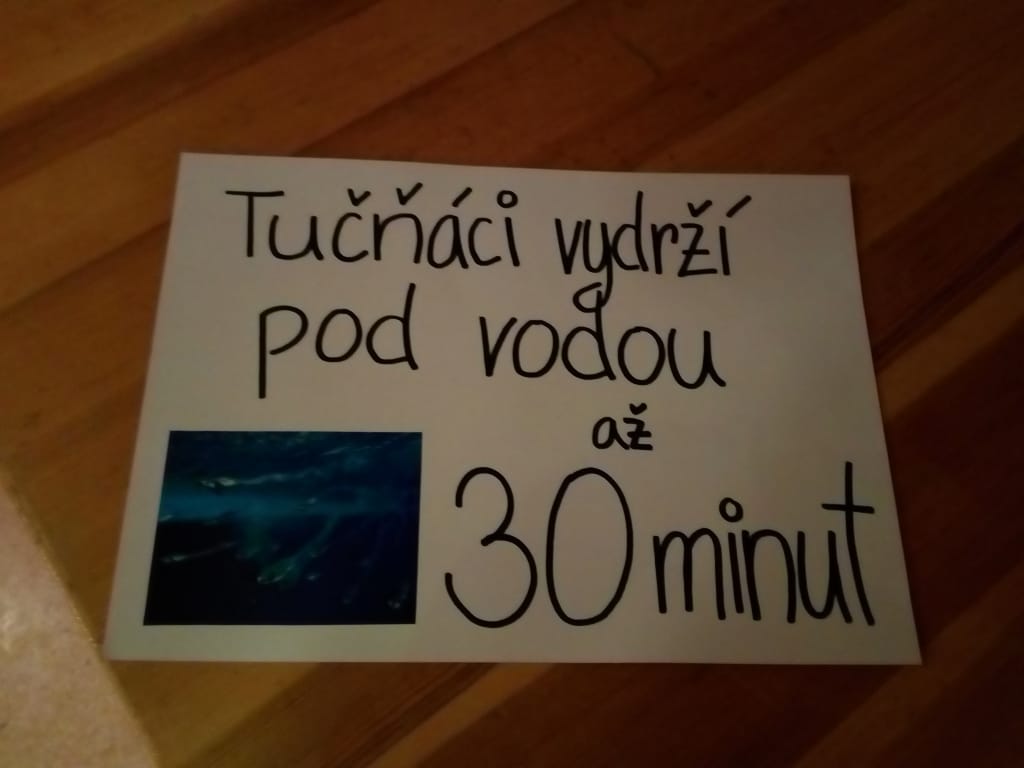 Tučňáci vydrží
pod vodou
až
30 minut